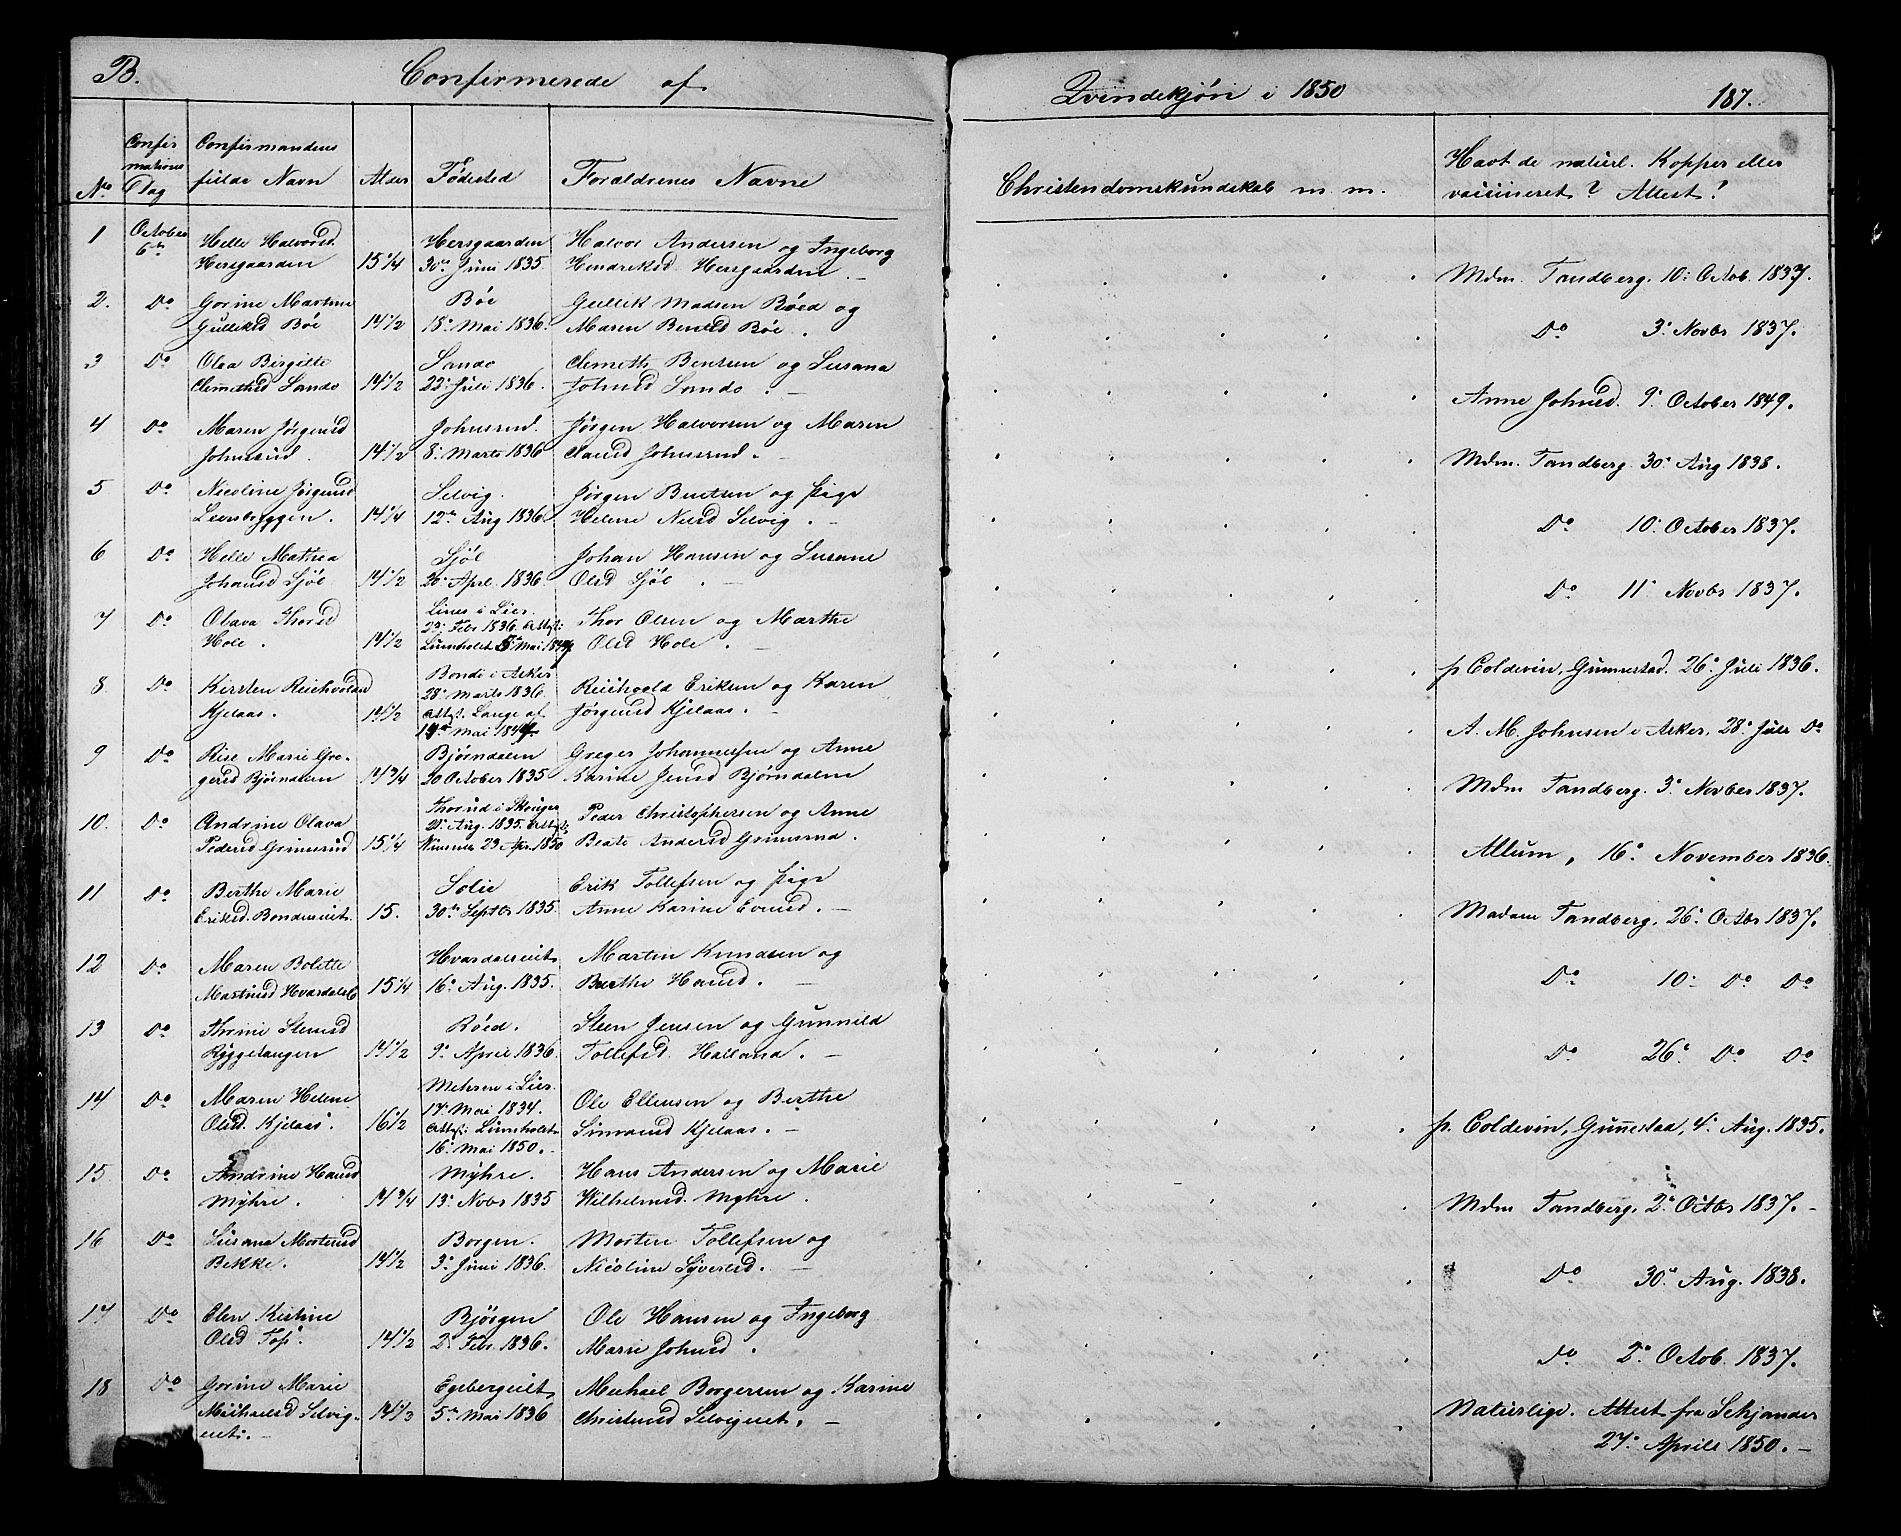 B. Confirmerede af Qvindekjøn i 1850 187.
No Confirmations Dag Confirmandens fulde Navn Alder Fødested Forældrenes Navne Christendomskundskab m. m. Havt de naturl. Kopper eller vaccineret? Attest?
1 October 6te Helle Halvorsd. Hersgaarden 15 1/4 Hersgaarden 30te Juni 1835. Halvor Andersen og Ingeborg Hendriksd. Hersgaarden. Mdm. Tandberg. 10: Octob. 1837.
2. Do Gorine Martine Gulliksd Bøe 14 1/2 Bøe 18: Mai 1836. Gullik Madsen Bøed og Maren Bentsd Bøe. Do 3: Novbr 1837.
3 Do Olea Birgitte Clemethsd Sando 14 1/2 Sando 22: Juli 1836. Clemeth Bentsen og Susana Johnsd Sando. Anne Johnsd. 9: October 1849.
4 Do Maren Jørgensd Johnsrud. 14 1/2 Johnsrud. 8: Marts 1836 Jørgen Halvorsen og Maren Clausd Johnsrud. Mdm. Tandberg. 30: Aug 1838.
5 Do Nicoline Jørgensd Leersbryggen. 14 1/4 Selvig. 12te Aug 1836. Jørgen Bentsen og Pige Helene Nilsd Selvig. Do 10: October 1837.
6 Do Helle Mathea Johansd Sjøl 14 1/2 Sjøl 20: Apr. 1836. Johan Hansen og Susane Olsd Sjøl. Do 11: Novbr 1837.
7 Do Olava Thorsd Hole. 14 1/2 Lines i Lier. 23: Febr 1836. Attest: Lumholtz 5te Mai 1849 Thor Olsen og Marthe Olsd Hole. p Coldevin, Gunnestad. 26: Juli 1836.
8 Do Kirsten Reichvoldsd Kjelaas. 14 1/2 Bondi i Asker 28: Marts 1836. Attest. Lange af 19de Mai 1849 Reichvold Eriksen og Karen Jørgensd Kjelaas. A. M. Johnsen i Asker, 28: Juli Do
9 Do Rise Marie Gregersd Bjørndalen 14 3/4 Bjørndalen 20 October 1835 Greger Johannessen og Anne Karine Jensd Bjørndalen Mdm Tandberg. 3: Novber 1837.
10. Do Andrine Olava Pedersd Grimsrud 15 1/4 Thorud i Skouger 21: Aug. 1835. Attest: 23 Apr. 1850 Peder Christophersen og Anne Beate Andersd Grimsrud. Allum, 16: November 1836.
11 Do Berthe Marie Eriksd. Bondeneiet 15. Solie 30te Septbr 1835. Erik Tollefsen og Pige Anne Karine Evensd. Madam Tandberg, 26: Octbr 1837.
12 Do Maren Bolette Martinsd Hvardals 15 1/4 Hvardalseiet 16: Aug. 1835. Martin Knudsen og Berthe Hansd. Do 10: Do Do
13 Do Thrine Steensd Ryggetangen 14 1/2 Røed. 9: April 1836. Steen Jensen og Gunnild Tollefsd. Holland. Do 26: Do Do
14 Do Maren Helene Olsd. Kjelaas. 16 1/2 Mehren i Lier. 14: Mai 1834. Attest: Lumholtz 16: Mai 1850. Ole Ellensen og Berthe Simensd Kjelaas. p. Coldevin, Gunnestad, 4: Aug. 1835.
15 Do Andrine Hansd Myhre. 14 3/4 Myhre. 13: Novbr 1835 Hans Andersen og Marie Wilhelmsd. Myhre. Mdm Tandberg. 2: Octbr 1837.
16 Do Susana Mortensd Bekke. 14 1/2 Borgen. 3: Juni 1836. Morten Tollefsen og Nicoline Syversd. Do 30: Aug. 1838.
17 Do Elen Kistine Olsd Fos. 14 1/2 Bjørgen 2: Febr. 1836. Ole Hansen og Ingeborg Marie Johnsd. Do 2: Octob. 1837.
18 Do Gorine Marie Michaelsd Selvigeiet. 14 1/3 Egebergeiet 5te Mai 1836 Michael Borgersen og Karine Christensd Selvigeiet. Naturlige. Attest fra Schjander 27: Aprile 1850.